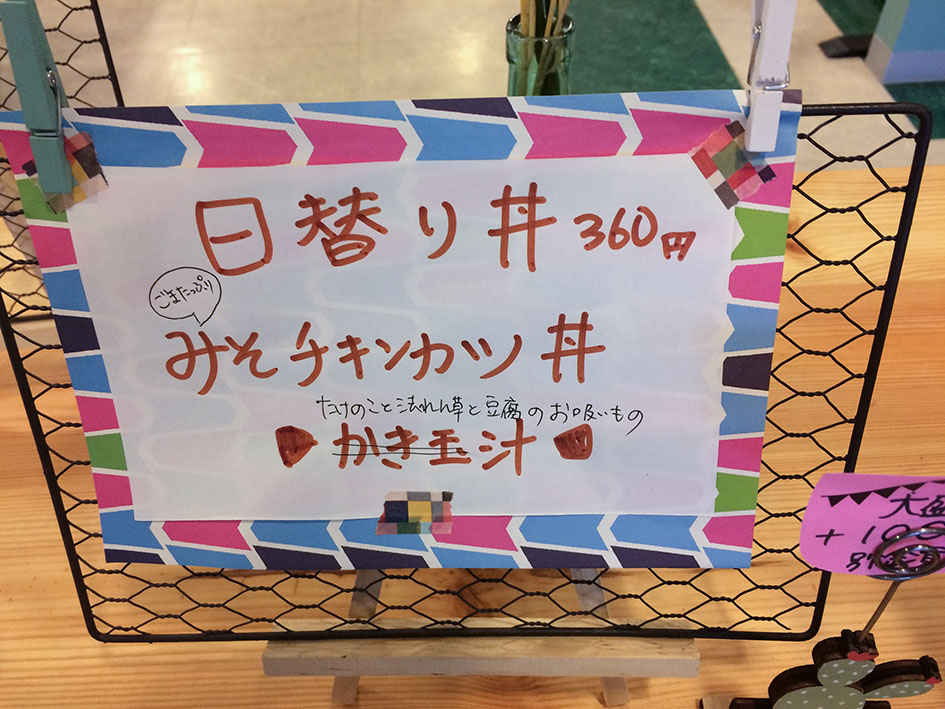 日替り丼 360円
ごまたっぷり
みそチキンカツ丼
たけのこと法れん草と豆腐のお吸いもの
かき玉汁
大盛
+100